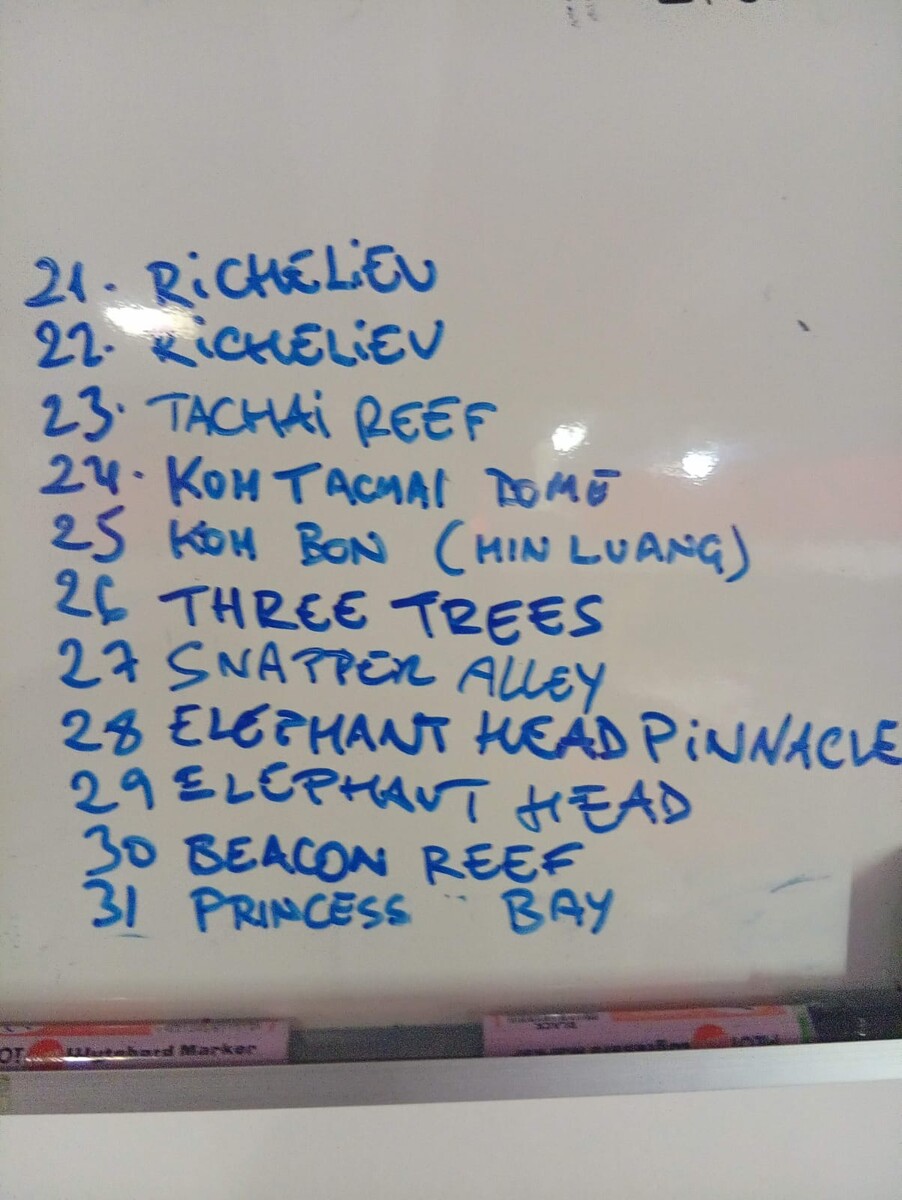 21. RiCHELiEU
22. RiCHELiEU
23. TACHAi REEF
24. KOH TACHAI DOME
25 KOH BON (HIN LUANG)
26 THREE TREES
27 SNAPPER ALLEY
28 ELEPHANT HEAD PiNNACLE
29 ELEPHANT HEAD
30 BEACON REEF
31 PRINCESS BAY
Wytebord Marker
BLACK
PILOT